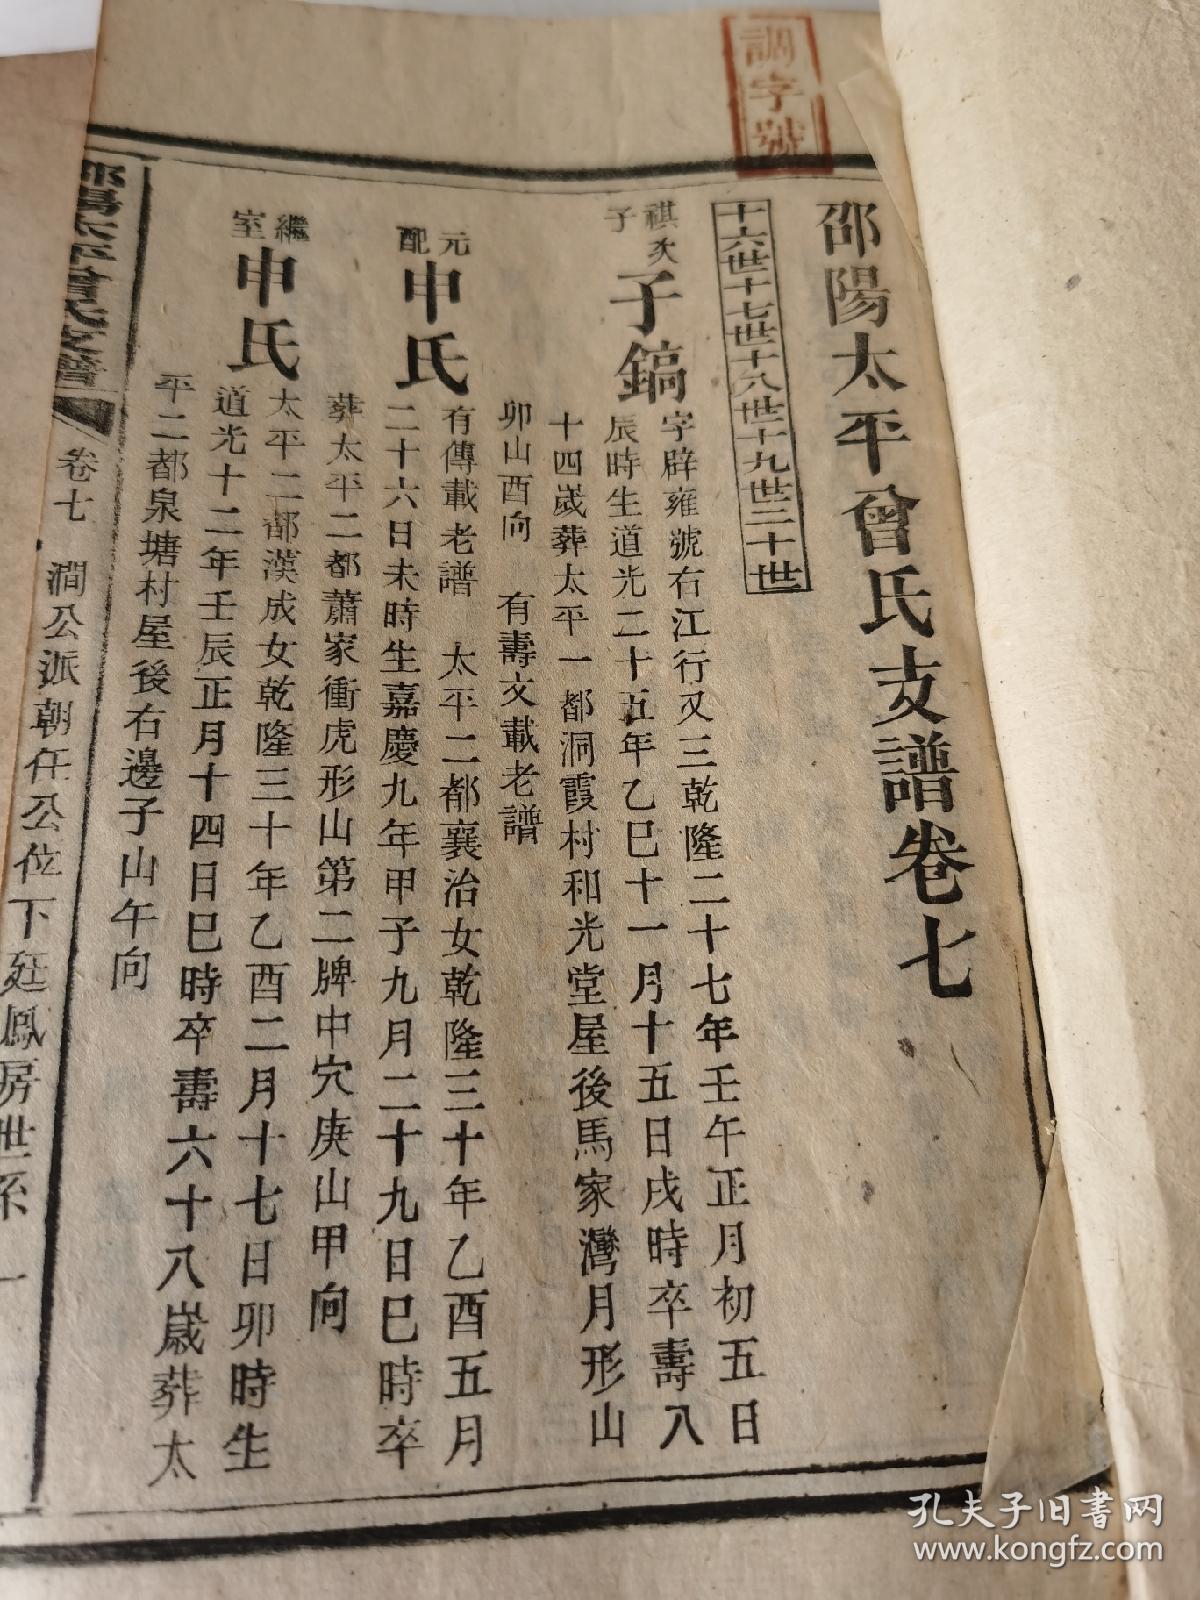 調字號
邵陽太平曾氏支譜卷七
十六世十七世十八世十九世二十世
祺次子
子鎬
字辟雍號右江行又三乾隆二十七年壬午正月初五日
辰時生道光二十五年乙巳十一月十五日戌時卒壽八
十四歲葬太平一都洞霞村和光堂屋後馬家灣月形山
卯山酉向 有壽文載老譜
元配
申氏
有傳載老譜 太平二都襄治女乾隆三十年乙酉五月
二十六日未時生嘉慶九年甲子九月二十九日巳時卒
葬太平二都蕭家衝虎形山第二牌中穴庚山甲向
繼室
申氏
太平二都漢成女乾隆三十年乙酉二月十七日卯時生
道光十二年壬辰正月十四日巳時卒壽六十八歲葬太
平二都泉塘村屋後右邊子山午向
邵陽太平曾氏支譜
卷七 澗公派朝任公位下廷鳳房世系 一
孔夫子旧书网
www.kongfz.com